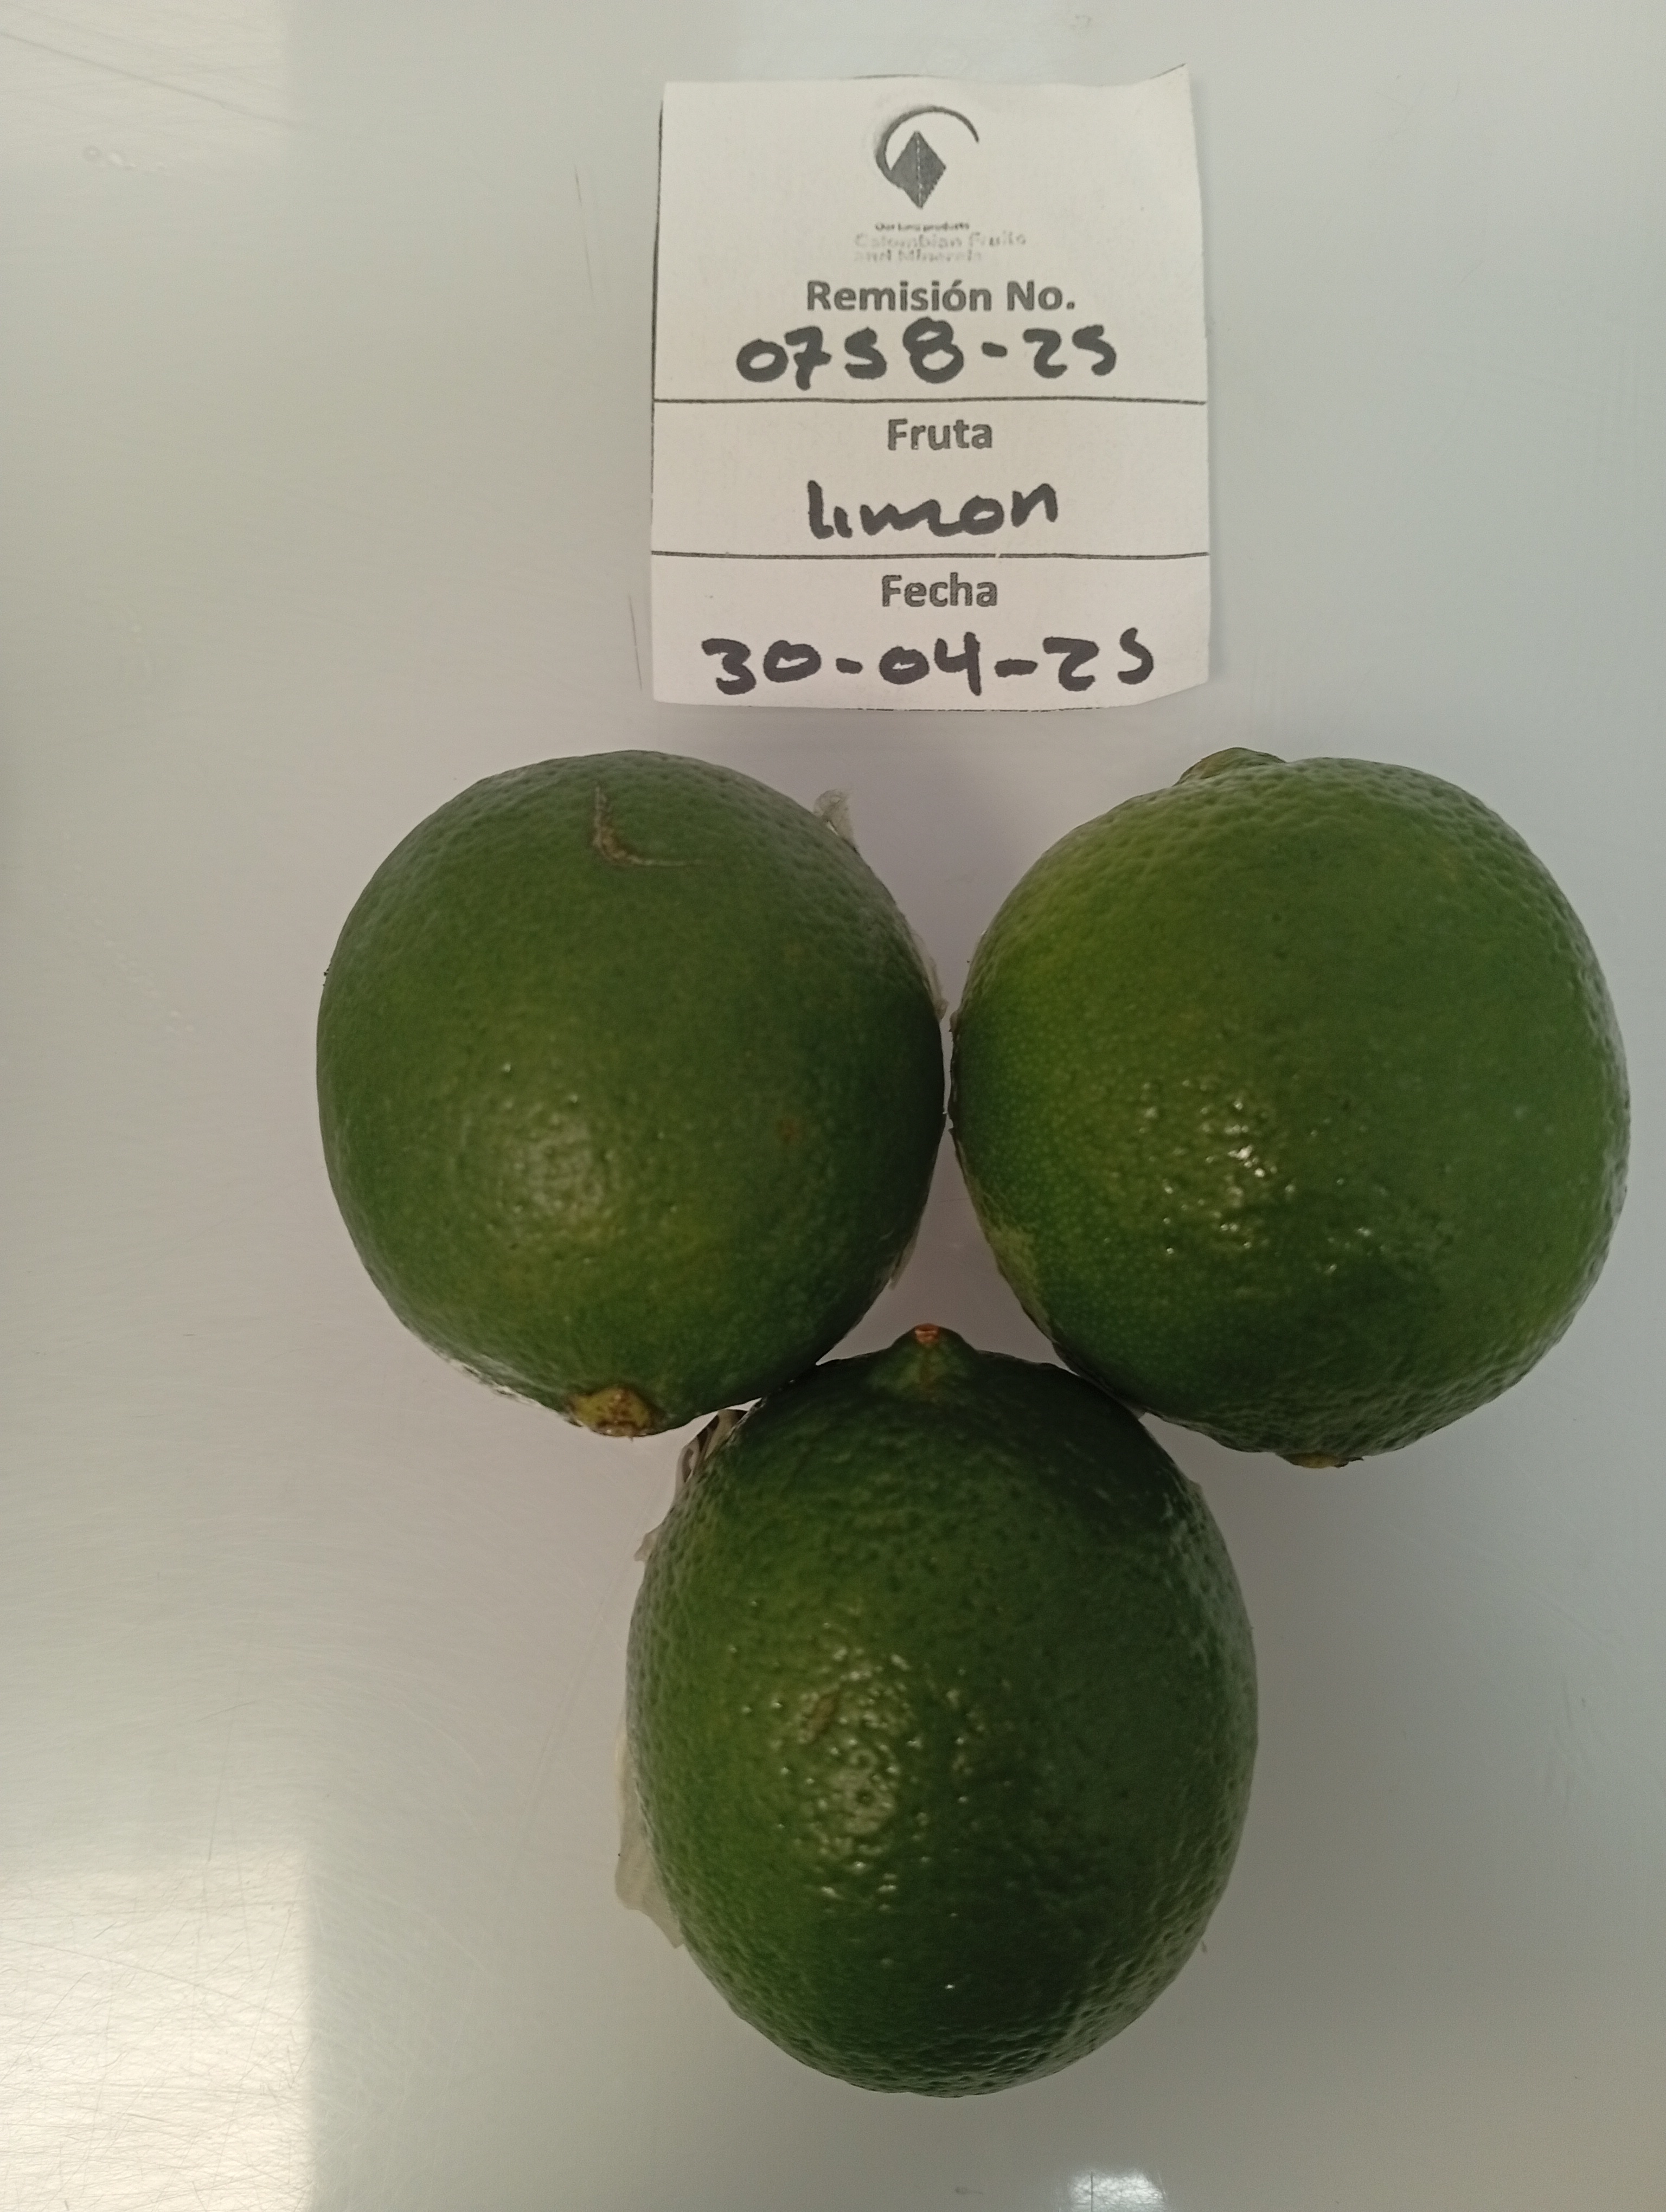 Our luxu products
Colombian Fruits
and Minerals
Remisión No.
0758-25
Fruta
limon
Fecha
30-04-25